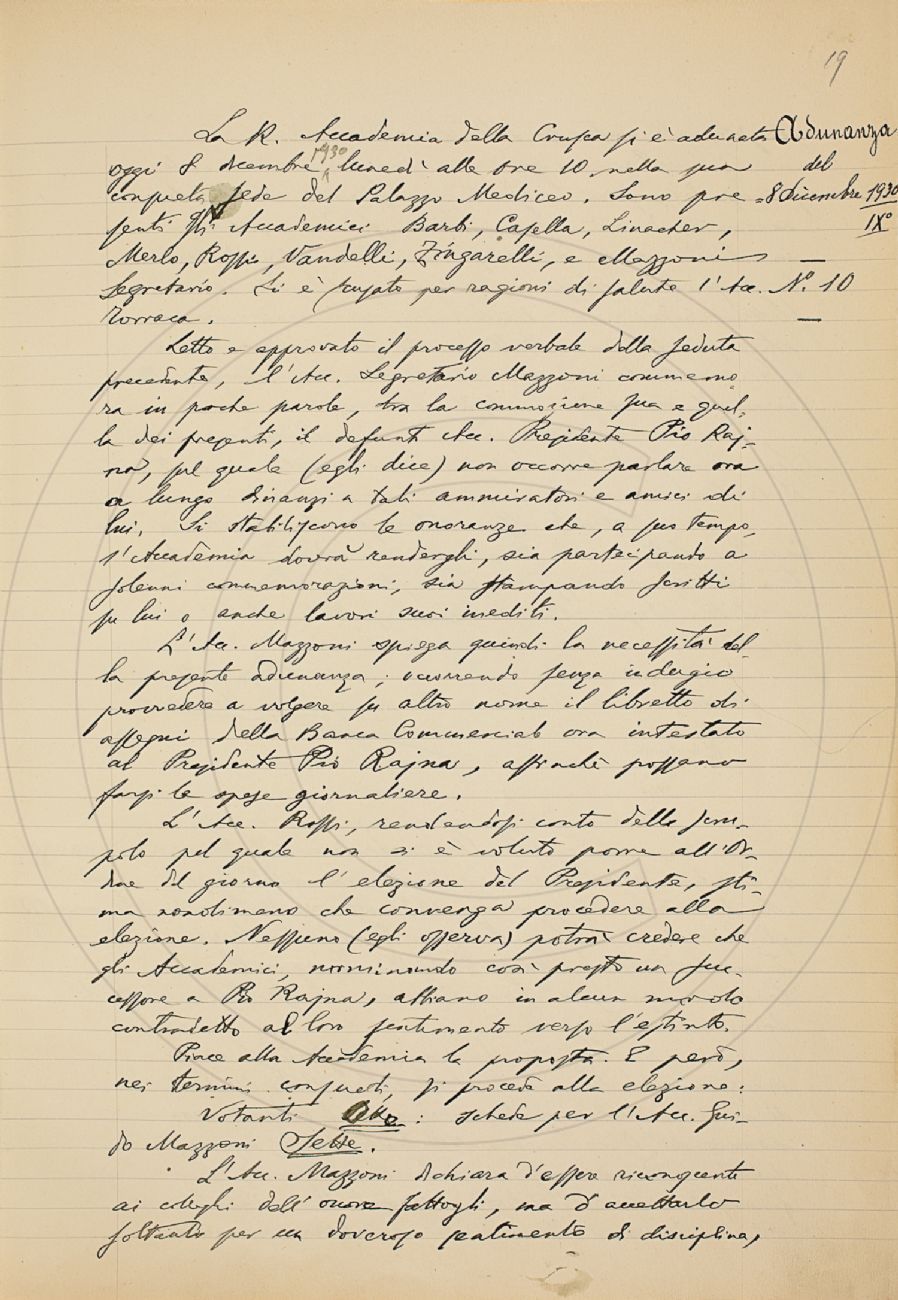 19
La R. Accademia della Crusca si è adunata
Adunanza
oggi 8 dicembre 1930 lunedì alle ore 10 nella sua
del
consueta sede del Palazzo Mediceo. Sono pre=
8 Dicembre 1930
senti gli Accademici Barbi, Casella, Linacher,
IX°
Merlo, Rossi, Vandelli, Zingarelli, e Mazzoni
Segretario. Si è scusato per ragioni di salute l'Acc.
N.° 10
Torraca.
Letto e approvato il processo verbale della seduta
precedente, l'Acc. Segretario Mazzoni commemo-
ra in poche parole, tra la commozione sua e quel-
la dei presenti, il defunto Acc. Presidente Pio Raj-
na, sul quale (egli dice) non occorre parlare ora
a lungo dinanzi a tali ammiratori e amici di
lui. Si stabiliscono le onoranze che, a suo tempo,
l'Accademia dovrà rendergli, sia partecipando a
solenni commemorazioni, sia stampando scritti
su lui o anche lavori suoi inediti.
L'Acc. Mazzoni spiega quindi la necessità del-
la presente adunanza; occorrendo senza indugio
provvedere a volgere su altro nome il libretto di
assegni della Banca Commerciale ora intestato
al Presidente Pio Rajna, affinchè possano
farsi le spese giornaliere.
L'Acc. Rossi, rendendosi conto dello scru-
polo pel quale non si è voluto porre all'Or-
dine del giorno l'elezione del Presidente, sti-
ma nonolimeno che convenga procedere alla
elezione. Nessuno (egli osserva) potrà credere che
gli Accademici, nominando così presto un suc-
cessore a Pio Rajna, abbiano in alcun modo
contradetto al loro sentimento verso l'estinto.
Piace alla Accademia la proposta. E però,
nei termini consueti, si procede alla elezione:
Votanti Otto: schede per l'Acc. Gui-
do Mazzoni Sette.
L'Acc. Mazzoni dichiara d'essere riconoscente
ai colleghi dell'onore fattogli, ma d'accettarlo
soltanto per un doveroso sentimento di disciplina,